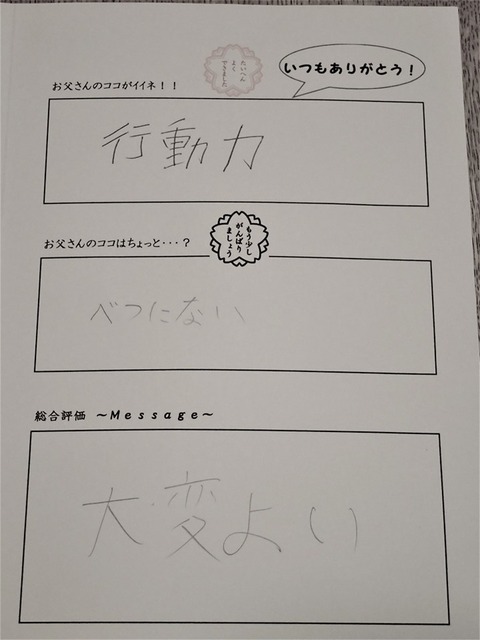 たいへん
よく
できました
いつもありがとう！
お父さんのココがイイネ！！
行動力
お父さんのココはちょっと・・・？
もう少し
がんばり
ましょう
べつにない
総合評価 ～Message～
大変よい